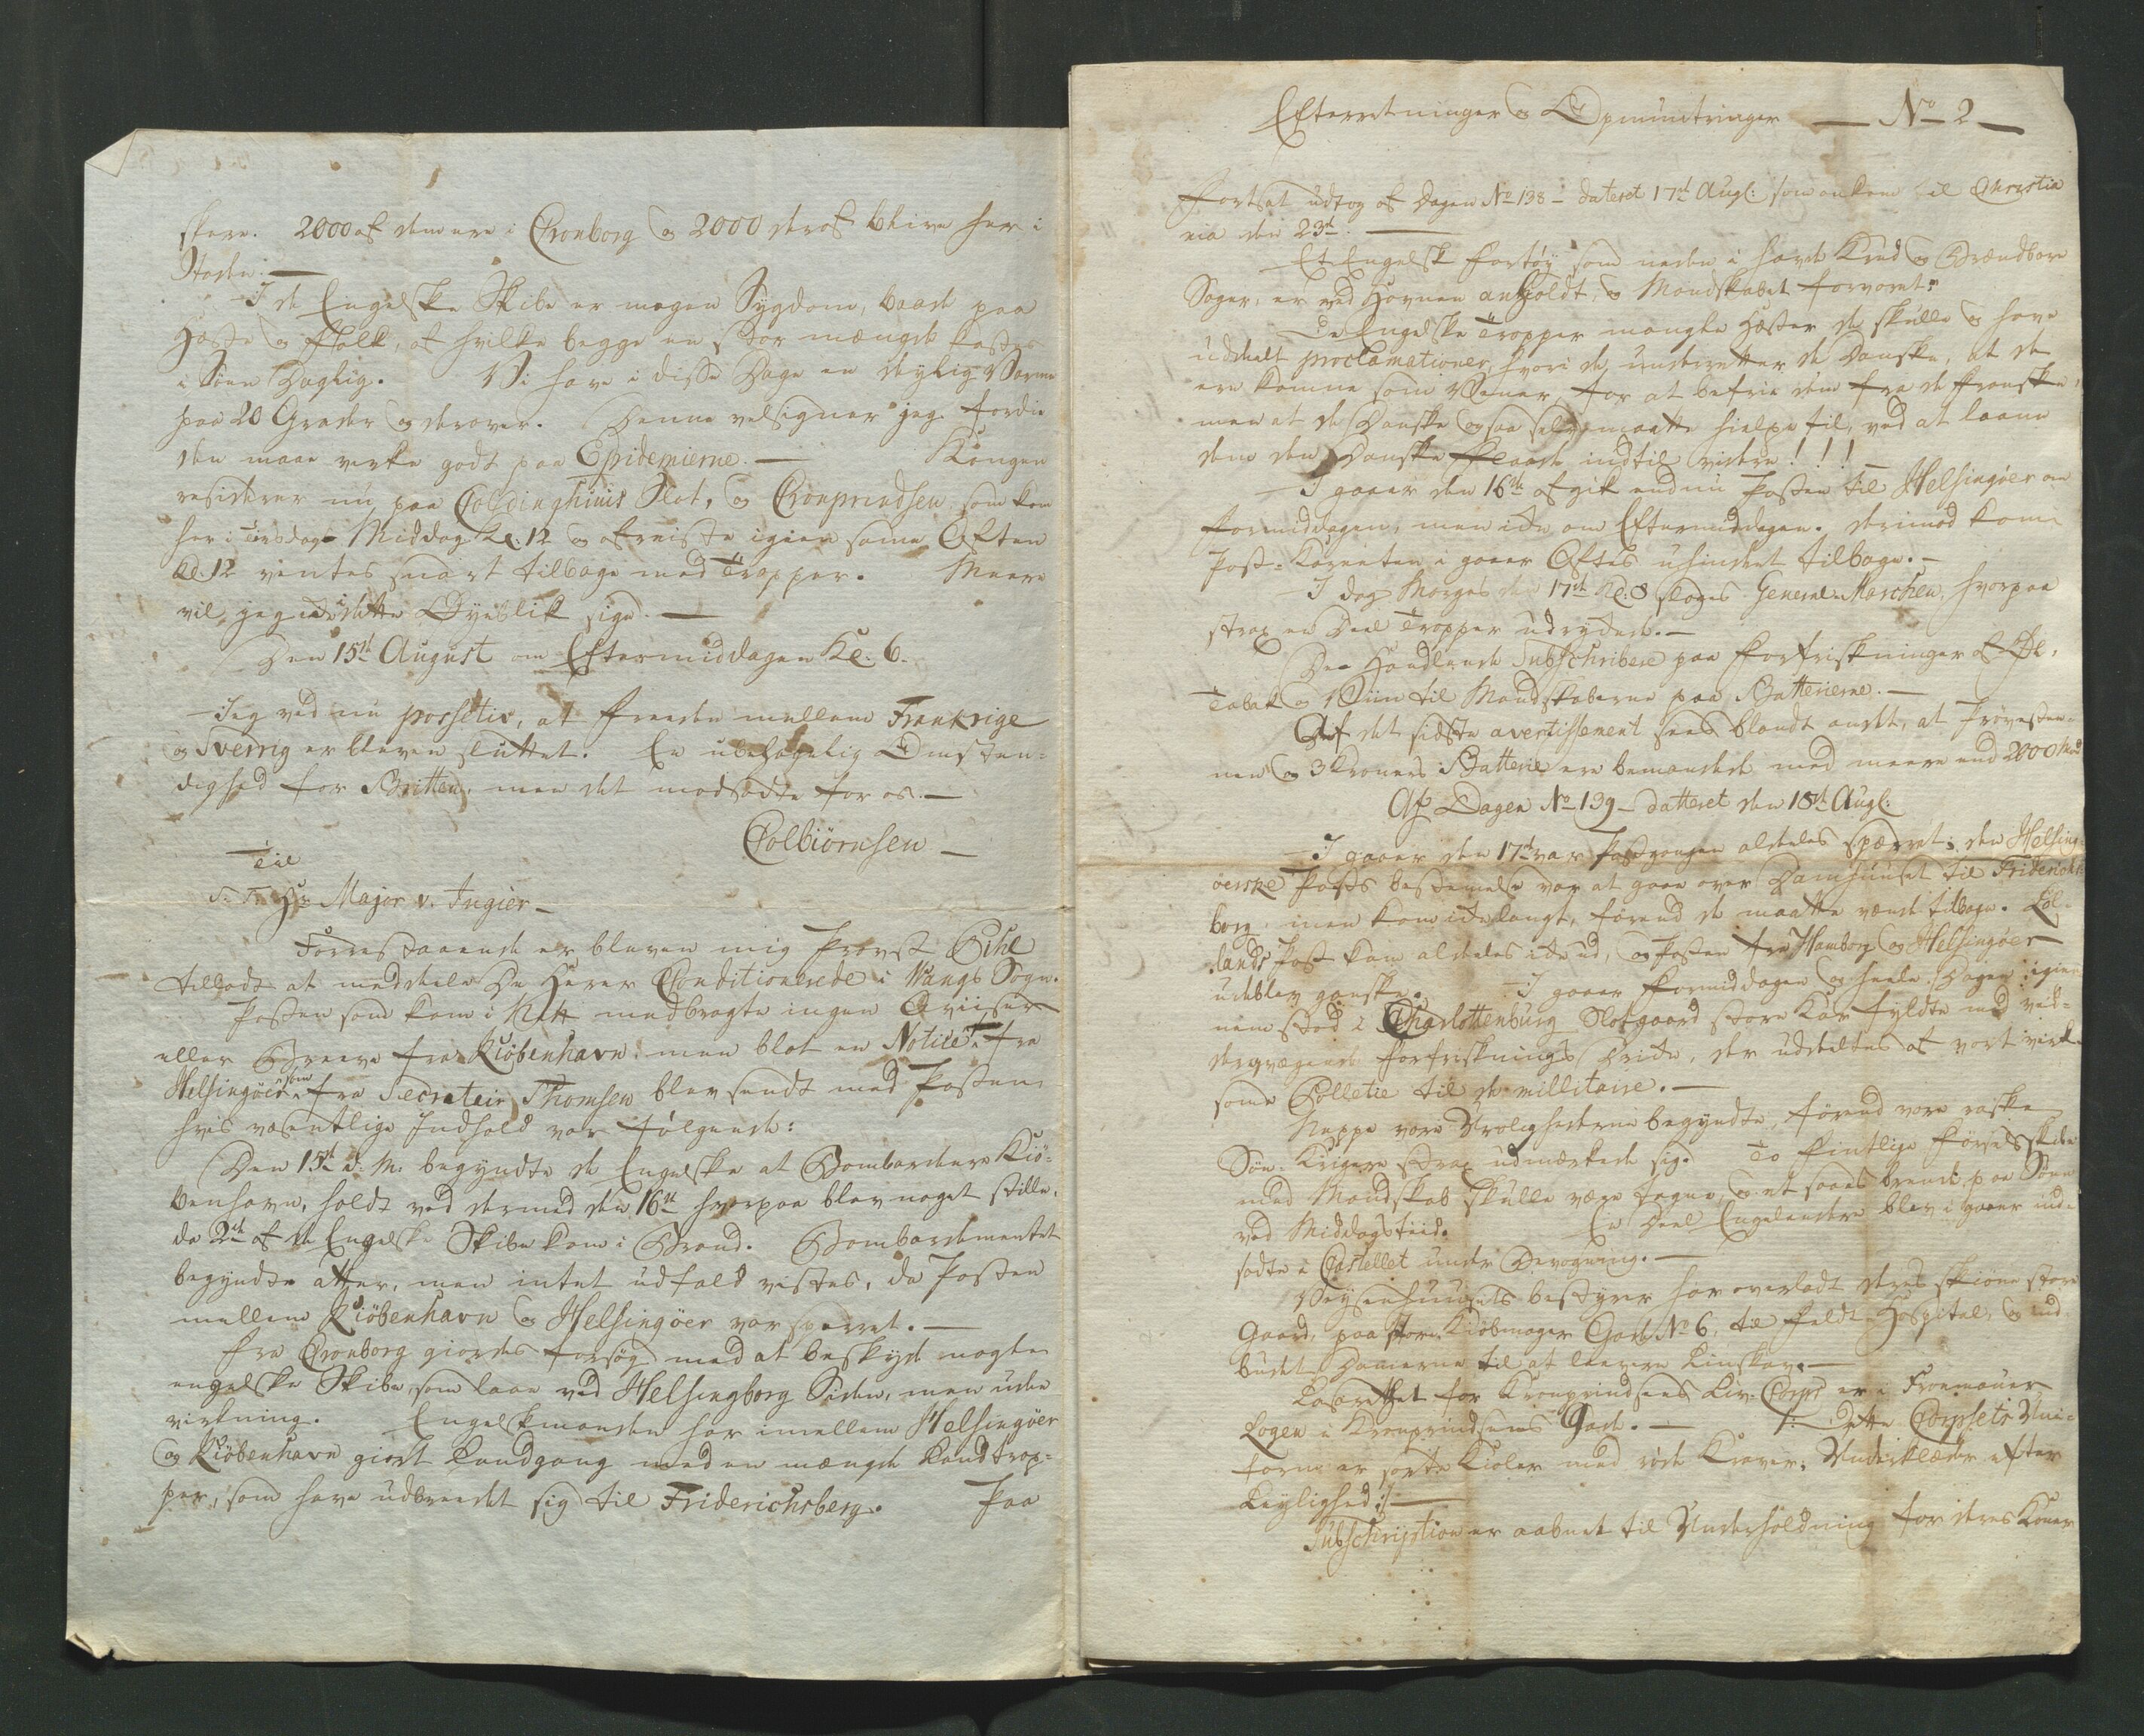 skere. 2000 af dem ere i Cronborg og 2000 deraf blive her i
Staden. —
I de Engelske Skibe er megen Sygdom, baade paa
Heste og Folk, af hvilke begge en stor mængde kastes
i Søen Daglig. Vi have i disse Dage en deylig Varme
paa 20 Grader og derover. Denne velsigner jeg fordi
den maae virke godt paa Epidemierne. — Kongen
residerer nu paa Coldinghuus Slot, og Cronprindsen som kom
her i Tirsdags Middag Kl. 12 og afreiste igien samme Aften
Kl. 12 ventes snart tilbage med Tropper. Meere
vil jeg ei i dette Øyeblik sige. —
Den 15de August om Eftermiddagen Kl. 6.
Jeg ved nu possetiv, at Freden mellem Frankrige
og Sverrig er bleven sluttet. En ubehagelig Omsten-
dighed for Britten, men det modsadte for os. —
Colbiørnsen —
Til
S. T. Hr Major v. Ingier —
Forrestaaende er bleven mig Provst Pihl
tilladt at meddele De Herrer Conditionerede i Wangs Sogn.
Posten som kom i Natt medbragte ingen Aviiser
eller Breeve fra Kiöbenhavn: men blot en Notice fra
Helsingöer som fra Secretair Thomsen blev sendt med Posten
hvis væsentlige Indhold var følgende:
Den 15de d. M. begyndte de Engelske at Bombardere Kiö-
benhavn, holdt ved dermed den 16de hvorpaa blev noget stille,
da 2de af de Engelske Skibe kom i Brand. Bombardementet
begyndte atter, men intet udfald vistes, da Posten
mellem Kiöbenhavn og Helsingöer var sperret. —
Fra Cronborg giordes forsøg med at beskyde nogle
engelske Skibe, som laae ved Helsingborg Siden, men uden
virkning. Engelskmanden har imellem Helsingöer
og Kiöbenhavn giort Landgang med en mængde Landtrop-
per, som have udbreedt sig til Friderichsberg. Paa
Efterretninger og Opmuntringer — No 2 —
Fortsat udtog af Dagen No 138 - dateret 17de Augl: som ankom til Christia
nia den 23de. —
Et Engelsk Fartøy som neden i havde Krud og Brændbare
Sager, er ved Hornen anholdt, og Mandskabet forvaret.
De Engelske Tropper mangle Heste de skulle og have
uddeelt proclamationer, hvori de underretter de Danske, at de
ere komne som Venner, for at befrie dem fra de Franske,
men at de Danske ogsaa selv maatte hielpe til, ved at laane
dem den Danske Flaade indtil videre!!! —
I gaaer den 16de afgik endnu Posten til Helsingöer om
formiddagen, men ikke om Eftermiddagen. derimod kom
Post-Kareten i gaaer Aftes uhindret tilbage. —
I dag Morges den 17de Kl: 8 sloges General Marchen, hvorpaa
strax en Deel Tropper udrykede. —
De Handlende Subschribere paa Forfriskninger af Øl,
Tobak og Viin til Mandskaberne paa Batterierne. —
Af det sidste avertissement sees blandt andet, at Prøvesten-
nen og 3 Kroners Batterie ere bemandede med meere end 2000 Md
Af Dagen No 139 - datteret den 18de Augl:
I gaaer den 17de var Postgangen aldeles sperret; den Helsing-
öerske Posts bestemelse var at gaae over Damhuuset til Friderichs-
borg, men kom ikke langt, førend de maatte vende tilbage. Lol-
lands Post kom aldeles ikke ud, og Posten fra Hamborg og Helsingöer
udeblev ganske. I gaaer Formiddagen og heele Dagen igien-
nem stod i Charlottenburg Slotsgaard store Kar fyldte med ved-
derqvægende Forfrisknings Drikke, der uddeeltes af vort virk-
somme Pollitie til de millitaire. —
Neppe vare Urolighederne begyndte, førend vore raske
Søe-Krigere strax udmærkede sig. To Fientlige Førselsskibe
med Mandskab skulle være tagne, og et saaes brende paa Søen
ved Middagstiid. En Deel Engelændere blev i gaaer ind-
sadte i Castellet under Bevogning. —
Waysenhuusets bestyrer har overladt deres skiønne store
Gaard, paa store Kiøbmager Gade No 6, til Feldt-Hospital, og ind-
budet Damerne til at levere Linskav. —
Lazarettet for Kronprindsens Liv-Corps er i Friemaurer
Logen i Kronprindsens Gade. — /: dette Corpsets Uni-
form er sorte Kioler med røde Kraver, Underklæder efter
Leylighed :/ —
Subschription er aabnet til Underholdning for deres Koner